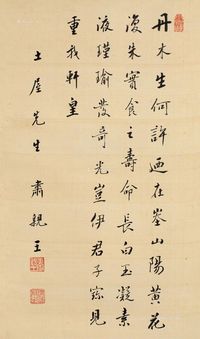 丹木生何許迺在峚山陽黃花
復朱實食之壽命長白玉凝素
液瑾瑜發奇光豈伊君子寶見
重我軒皇
土屋先生 肅親王